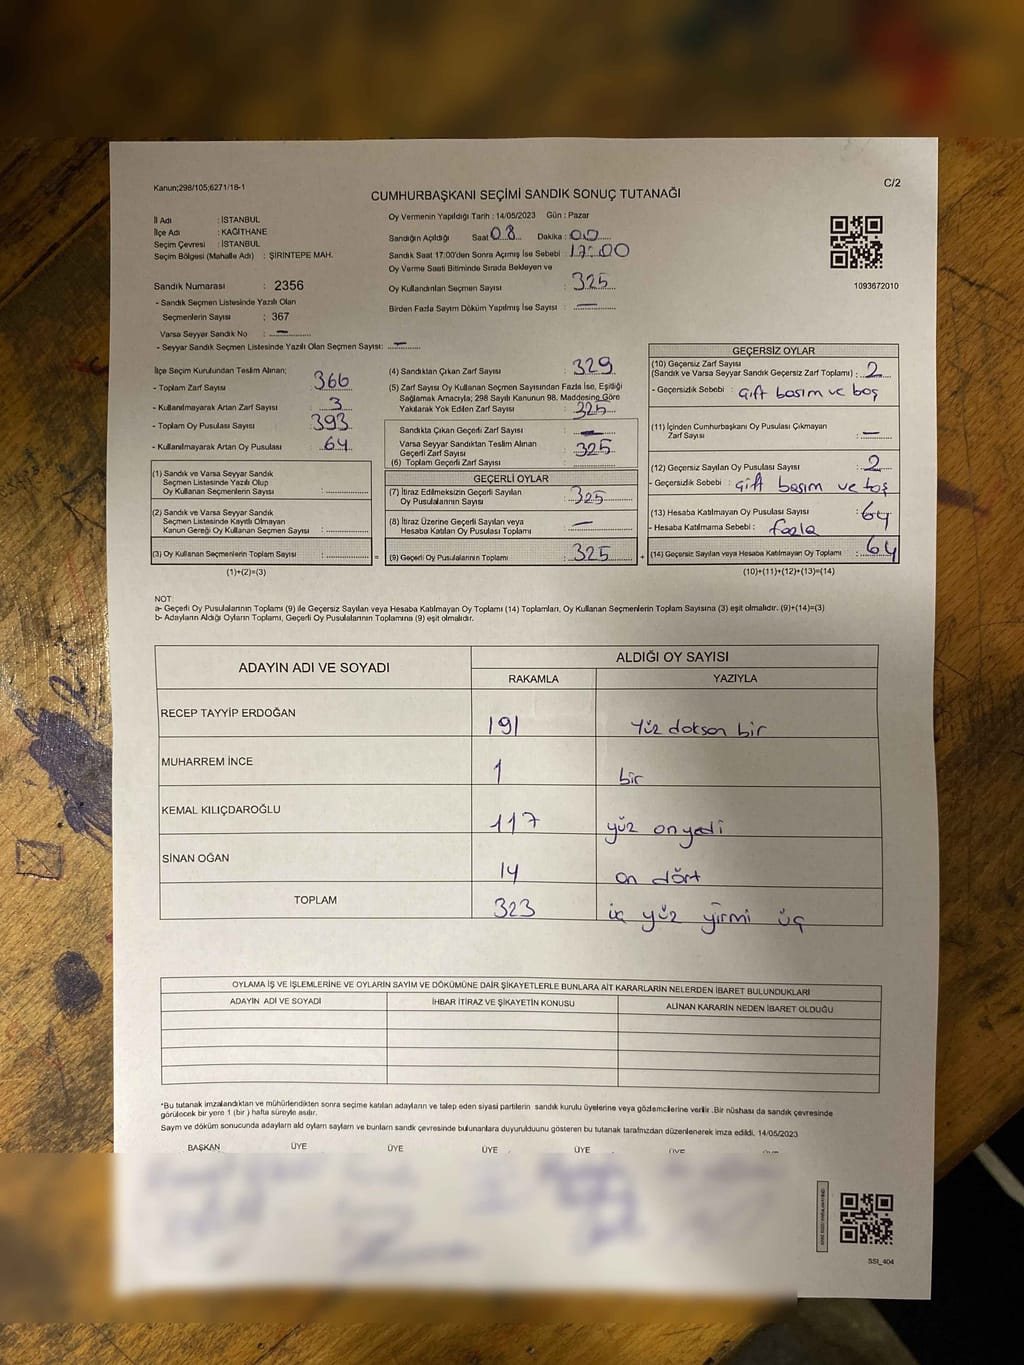 Kanun;298/105;6271/16-1
C/2
CUMHURBAŞKANI SEÇİMİ SANDIK SONUÇ TUTANAĞI
İl Adı : İSTANBUL
İlçe Adı : KAĞITHANE
Seçim Çevresi : İSTANBUL
Seçim Bölgesi (Mahalle Adı) : ŞİRİNTEPE MAH.
Oy Vermenin Yapıldığı Tarih : 14/05/2023 Gün : Pazar
Sandığın Açıldığı Saat 08 Dakika : 00
Sandık Saat 17:00'den Sonra Açımış İse Sebebi : 17:00
Oy Verme Saati Bitiminde Sırada Bekleyen ve
Oy Kullandırılan Seçmen Sayısı : 325
Birden Fazla Sayım Döküm Yapılmış İse Sayısı : —
1093672010
Sandık Numarası : 2356
- Sandık Seçmen Listesinde Yazılı Olan
Seçmenlerin Sayısı : 367
Varsa Seyyar Sandık No : —
- Seyyar Sandık Seçmen Listesinde Yazılı Olan Seçmen Sayısı: —
İlçe Seçim Kurulundan Teslim Alınan;
- Toplam Zarf Sayısı : 366
- Kullanılmayarak Artan Zarf Sayısı : 3
- Toplam Oy Pusulası Sayısı : 393
- Kullanılmayarak Artan Oy Pusulası : 64
(1) Sandık ve Varsa Seyyar Sandık
Seçmen Listesinde Yazılı Olup
Oy Kullanan Seçmenlerin Sayısı :
(2) Sandık ve Varsa Seyyar Sandık
Seçmen Listesinde Kayıtlı Olmayan
Kanun Gereği Oy Kullanan Seçmen Sayısı :
(3) Oy Kullanan Seçmenlerin Toplam Sayısı : =
(1)+(2)=(3)
(4) Sandıktan Çıkan Zarf Sayısı : 329
(5) Zarf Sayısı Oy Kullanan Seçmen Sayısından Fazla İse, Eşitliği
Sağlamak Amacıyla; 298 Sayılı Kanunun 98. Maddesine Göre
Yakılarak Yok Edilen Zarf Sayısı : 325
Sandıkta Çıkan Geçerli Zarf Sayısı : —
Varsa Seyyar Sandıktan Teslim Alınan
Geçerli Zarf Sayısı : 325
(6) Toplam Geçerli Zarf Sayısı :
GEÇERLİ OYLAR
(7) İtiraz Edilmeksizin Geçerli Sayılan
Oy Pusulalarının Sayısı : 325
(8) İtiraz Üzerine Geçerli Sayılan veya
Hesaba Katılan Oy Pusulası Toplamı : —
(9) Geçerli Oy Pusulalarının Toplamı : 325 +
GEÇERSİZ OYLAR
(10) Geçersiz Zarf Sayısı
(Sandık ve Varsa Seyyar Sandık Geçersiz Zarf Toplamı) : 2
- Geçersizlik Sebebi : Çift basım ve boş
(11) İçinden Cumhurbaşkanı Oy Pusulası Çıkmayan
Zarf Sayısı : —
(12) Geçersiz Sayılan Oy Pusulası Sayısı : 2
- Geçersizlik Sebebi : Çift basım ve boş
(13) Hesaba Katılmayan Oy Pusulası Sayısı : 64
- Hesaba Katılmama Sebebi : fazla
(14) Geçersiz Sayılan veya Hesaba Katılmayan Oy Toplamı : 64
(10)+(11)+(12)+(13)=(14)
NOT:
a- Geçerli Oy Pusulalarının Toplamı (9) ile Geçersiz Sayılan veya Hesaba Katılmayan Oy Toplamı (14) Toplamları, Oy Kullanan Seçmenlerin Toplam Sayısına (3) eşit olmalıdır. (9)+(14)=(3)
b- Adayların Aldığı Oyların Toplamı, Geçerli Oy Pusulalarının Toplamına (9) eşit olmalıdır.
ADAYIN ADI VE SOYADI
ALDIĞI OY SAYISI
RAKAMLA YAZIYLA
RECEP TAYYİP ERDOĞAN 191 Yüz doksan bir
MUHARREM İNCE 1 bir
KEMAL KILIÇDAROĞLU 117 yüz onyedi
SİNAN OĞAN 14 on dört
TOPLAM 323 üç yüz yirmi üç
OYLAMA İŞ VE İŞLEMLERİNE VE OYLARIN SAYIM VE DÖKÜMÜNE DAİR ŞİKAYETLERLE BUNLARA AİT KARARLARIN NELERDEN İBARET BULUNDUKLARI
ADAYIN ADI VE SOYADI İHBAR İTİRAZ VE ŞİKAYETİN KONUSU ALINAN KARARIN NEDEN İBARET OLDUĞU
*Bu tutanak imzalandıktan ve mühürlendikten sonra seçime katılan adayların ve talep eden siyasi partilerin sandık kurulu üyelerine veya gözlemcilerine verilir .Bir nüshası da sandık çevresinde
görülecek bir yere 1 (bir ) hafta süreyle asılır.
Sayım ve döküm sonucunda adayların ald oyların sayların ve bunların sandk çevresinde bulunanlara duyurulduunu gösteren bu tutanak tarafmzdan düzenlenerek imza edildi. 14/05/2023
BAŞKAN ÜYE ÜYE ÜYE ÜYE ÜYE
SSI_404